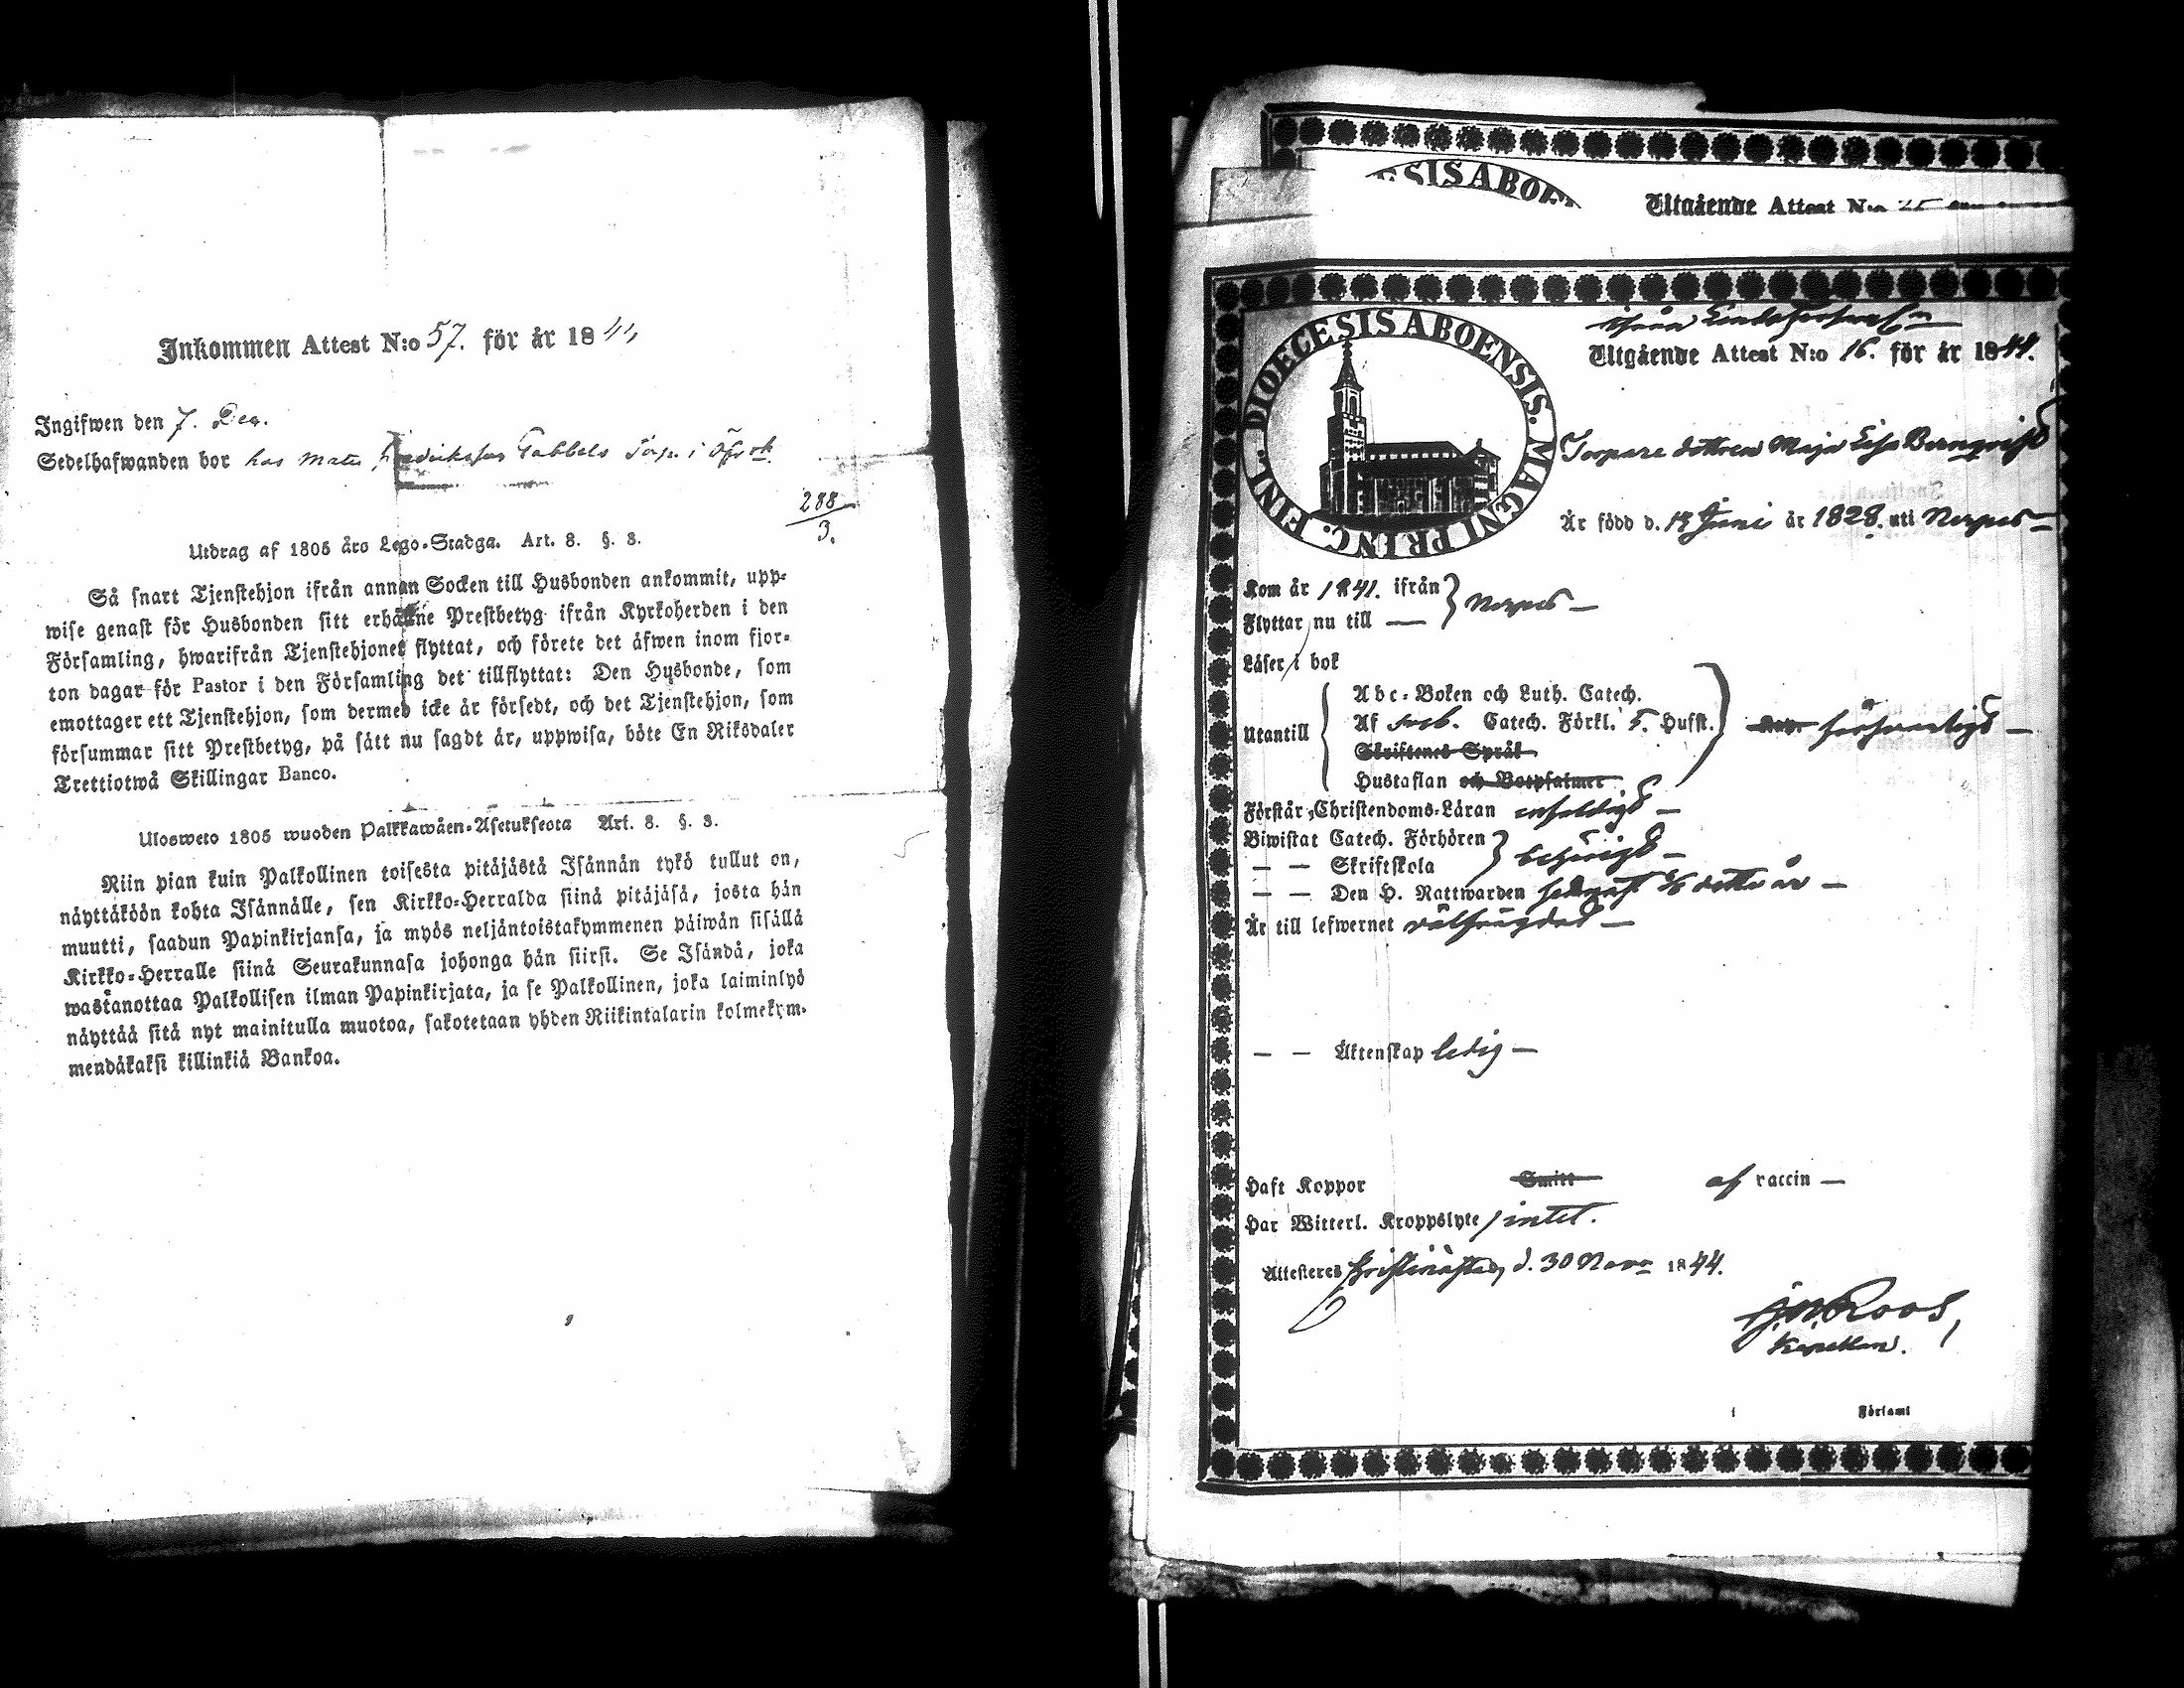 Inkommen Attest N:o 57. för år 1844
Ingifwen den 7. Dec.
Sedelhafwanden bor hos Mats Fredriksson Gabbels Torp i Öfver
288
3.
Utdrag af 1805 års Lego-Stadga. Art. 8. §. 3.
Så snart Tjenstehjon ifrån annan Socken till Husbonden ankommit, upp-
wise genast för Husbonden sitt erhållne Prestbetyg ifrån Kyrkoherden i den
Församling, hwarifrån Tjenstehjonet flyttat, och förete det äfwen inom fjor-
ton dagar för Pastor i den Församling det tillflyttat: Den Husbonde, som
emottager ett Tjenstehjon, som dermed icke är försedt, och det Tjenstehjon, som
försummar sitt Prestbetyg, på sätt nu sagdt är, uppwisa, böte En Riksdaler
Trettiotwå Skillingar Banco.
Ulosweto 1805 wuoden Palkkawäen-Asetuksesta Art. 8. §. 3.
Niin pian kuin Palkollinen toisesta pitäjästä Isännän tykö tullut on,
näyttäköön kohta Isännälle, sen Kirkko-Herralda siinä pitäjäsä, josta hän
muutti, saadun Papinkirjansa, ja myös neljäntoistakymmenen päiwän sisällä
Kirkko-Herralle siinä Seurakunnasa johonga hän siirsi. Se Isändä, joka
wastanottaa Palkollisen ilman Papinkirjata, ja se Palkollinen, joka laiminlyö
näyttää sitä nyt mainitulla muotoa, sakotetaan yhden Riikintalarin kolmekym-
mendäkaksi killinkiä Bankoa.
ESIS ABOEN
Utgående Attest N:o 25
ifrån
Utgående Attest N:o 16. för år 1844.
DIOECESIS ABOENSIS. MAGNI PRINC. FINL.
Torpare dottren Maja Lisa Bernqvist
Är född d. 14 Juni år 1828. uti Nerpes
Kom år 1841. ifrån
Nerpes
Flyttar nu till
Läser i bok
Utantill
Abc-Boken och Luth. Catech.
Af Sveb. Catech. Förkl. 5. Hufst.
försvarligt
Skriftenes Språk
Hustaflan och Botpsalmer
Förstår Christendoms-Läran enfaldigt
Biwistat Catech. Förhören
behörigt
— — Skriftskola
— — Den H. Nattwarden sednast detta år
Är till lefwernet välfrägdad
— — Äktenskap ledig
Haft Koppor Smitt af vaccin
Har Witterl. Kroppslyte intet.
Attesteres Christinestad, d. 30 Nov. 1844.
J. W. Roos,
Kapellan.
i Församl